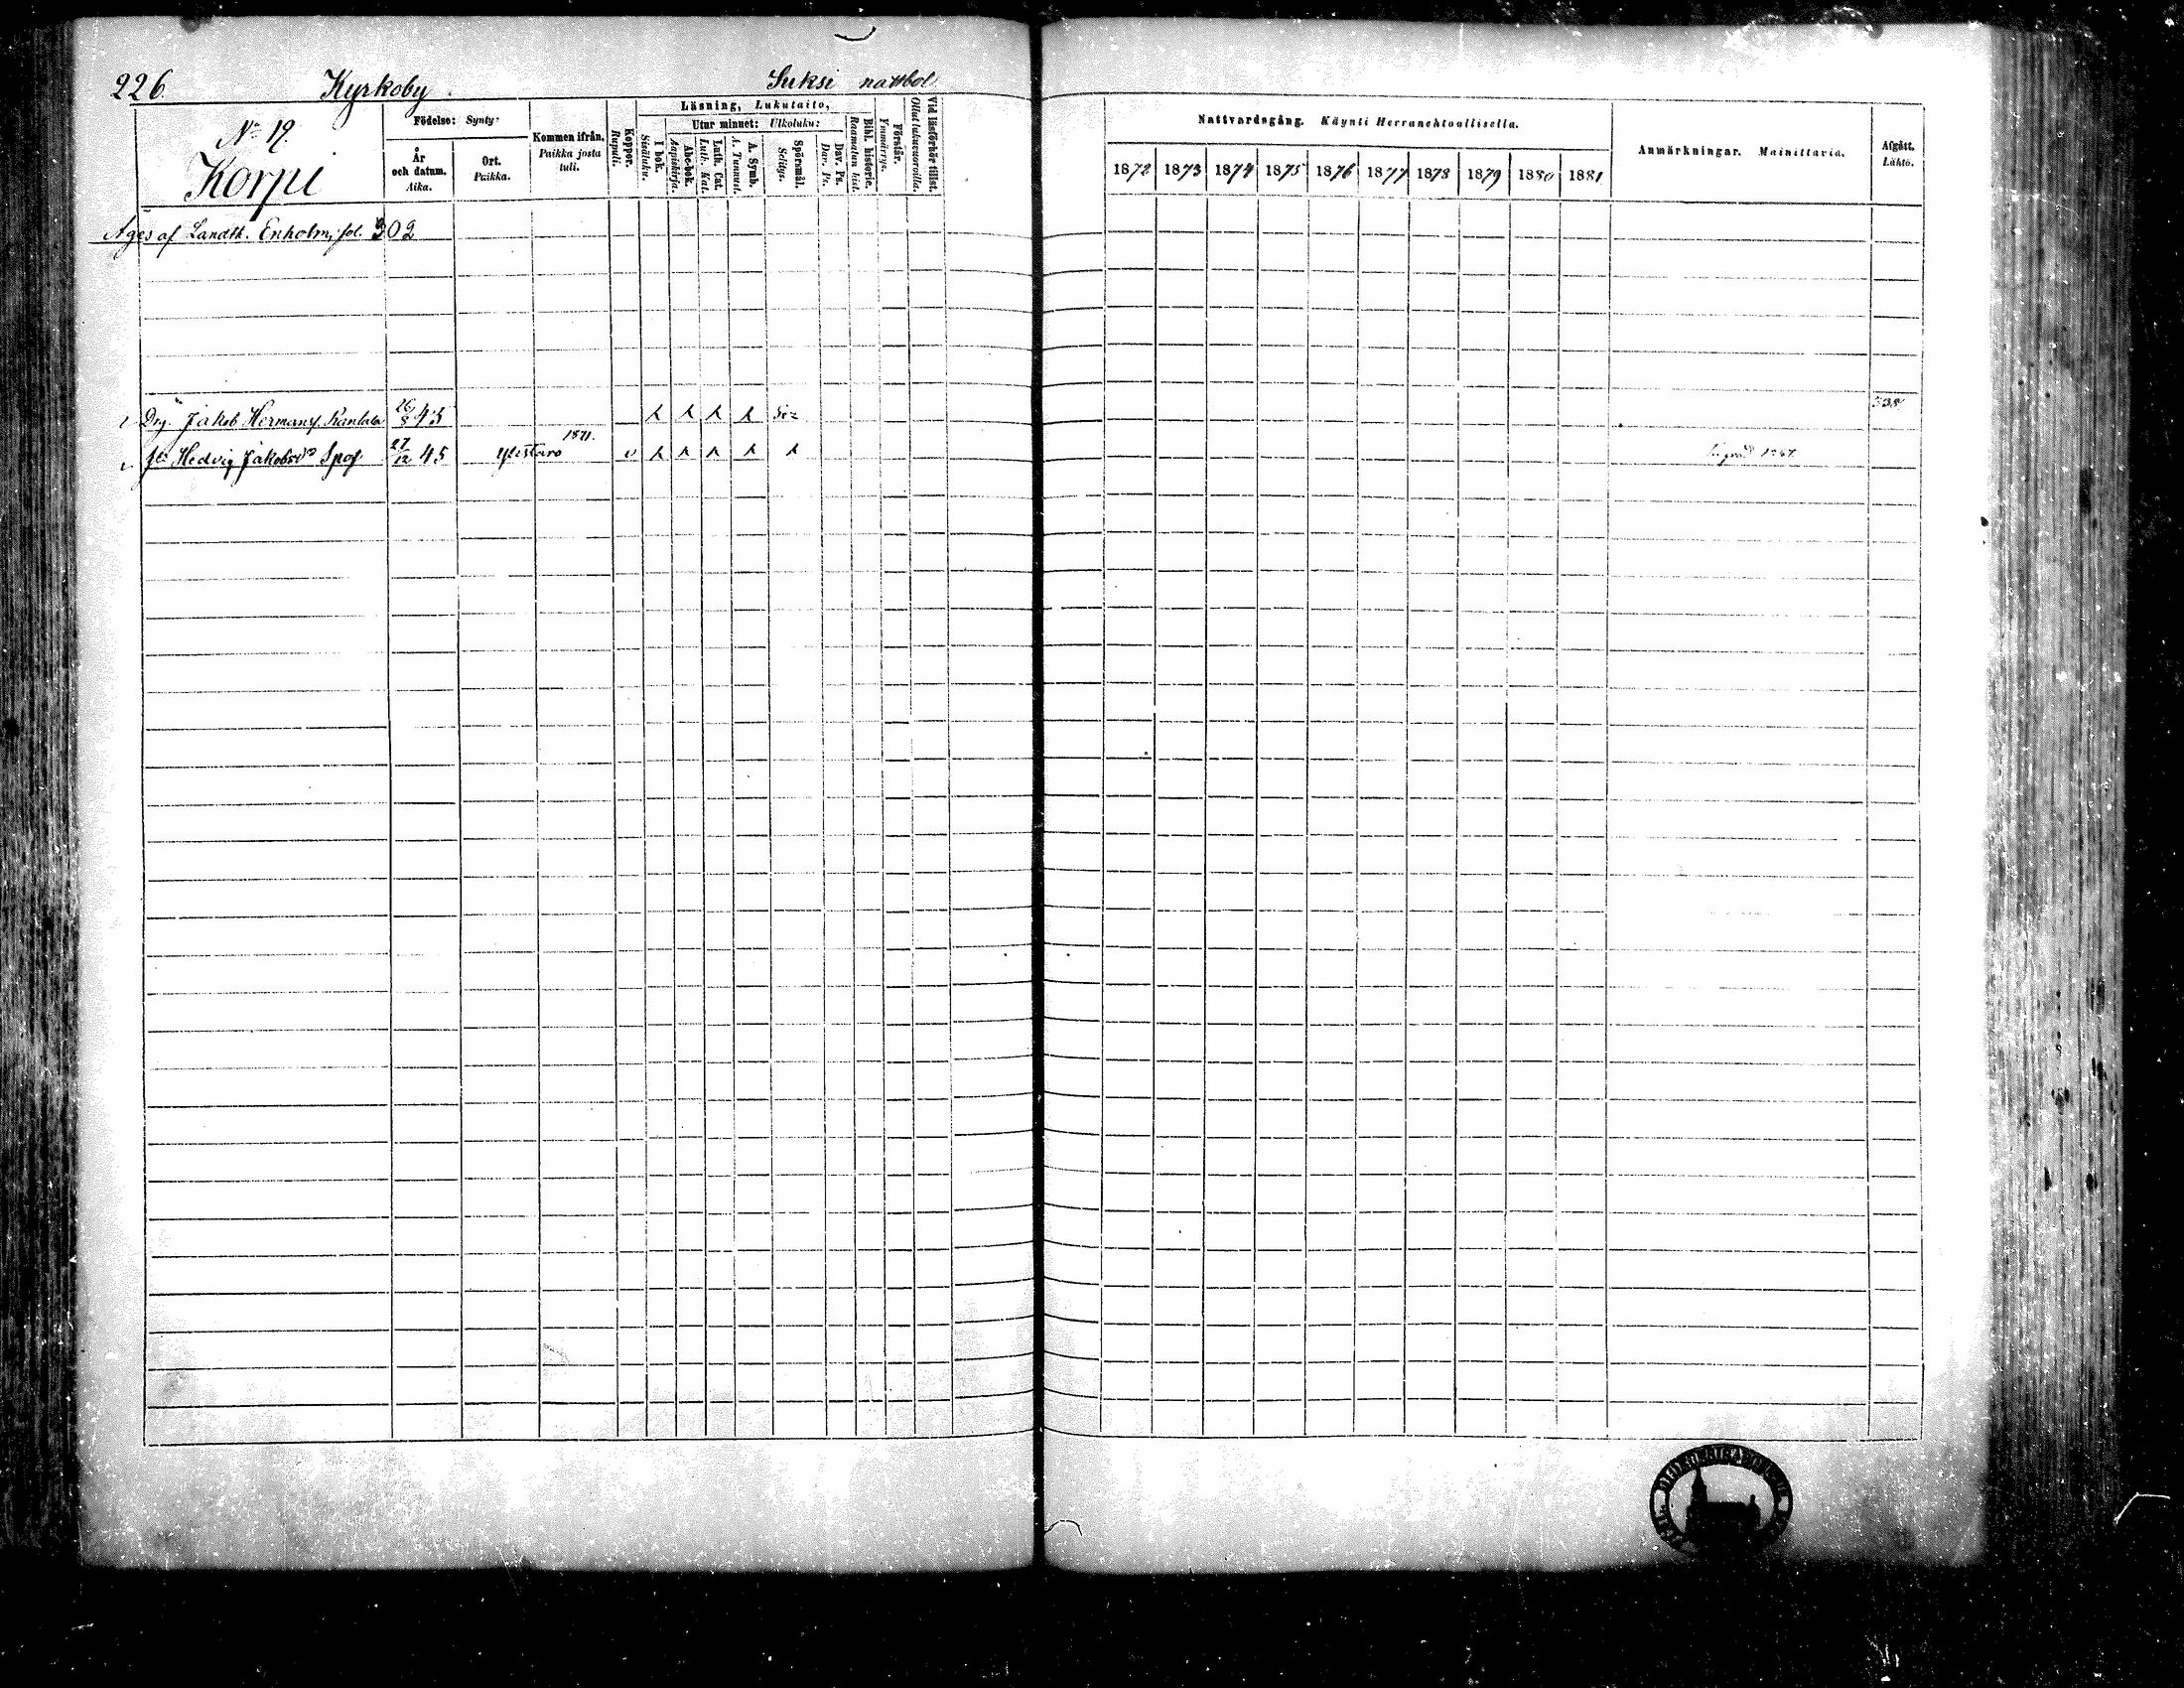 226. Kyrkoby. Suksi nattbol
No 12.
Korpi
Födelse: Synty:
År och datum. Aika.
Ort. Paikka.
Kommen ifrån. Paikka josta tuli.
Koppor. Rupuli.
Läsning, Lukutaito,
I bok. Sisäluku.
Utur minnet: Ulkoluku:
Abc-bok. Aapiskirja.
Luth. Cat. Luth. Kat.
A. Symb. A. Tunnust.
Spörsmål. Selitys.
Dav. Ps. Dav. Ps.
Bibl. historie. Raamatun hist.
Förstår. Ymmärrys.
Vid läsförhör tillst. Ollut lukuvuoroilla.
Nattvardsgång. Käynti Herranehtoollisella.
1872 1873 1874 1875 1876 1877 1878 1879 1880 1881
Anmärkningar. Mainittavia.
Afgått. Lähtö.
Äges af Landth. Enholm, fol. 302
Drg. Jakob Hermans. Rantala 26/8 45 338
1871.
Hu Hedvig Jakobsdr Spof 27/12 45 Ylistaro 1867.